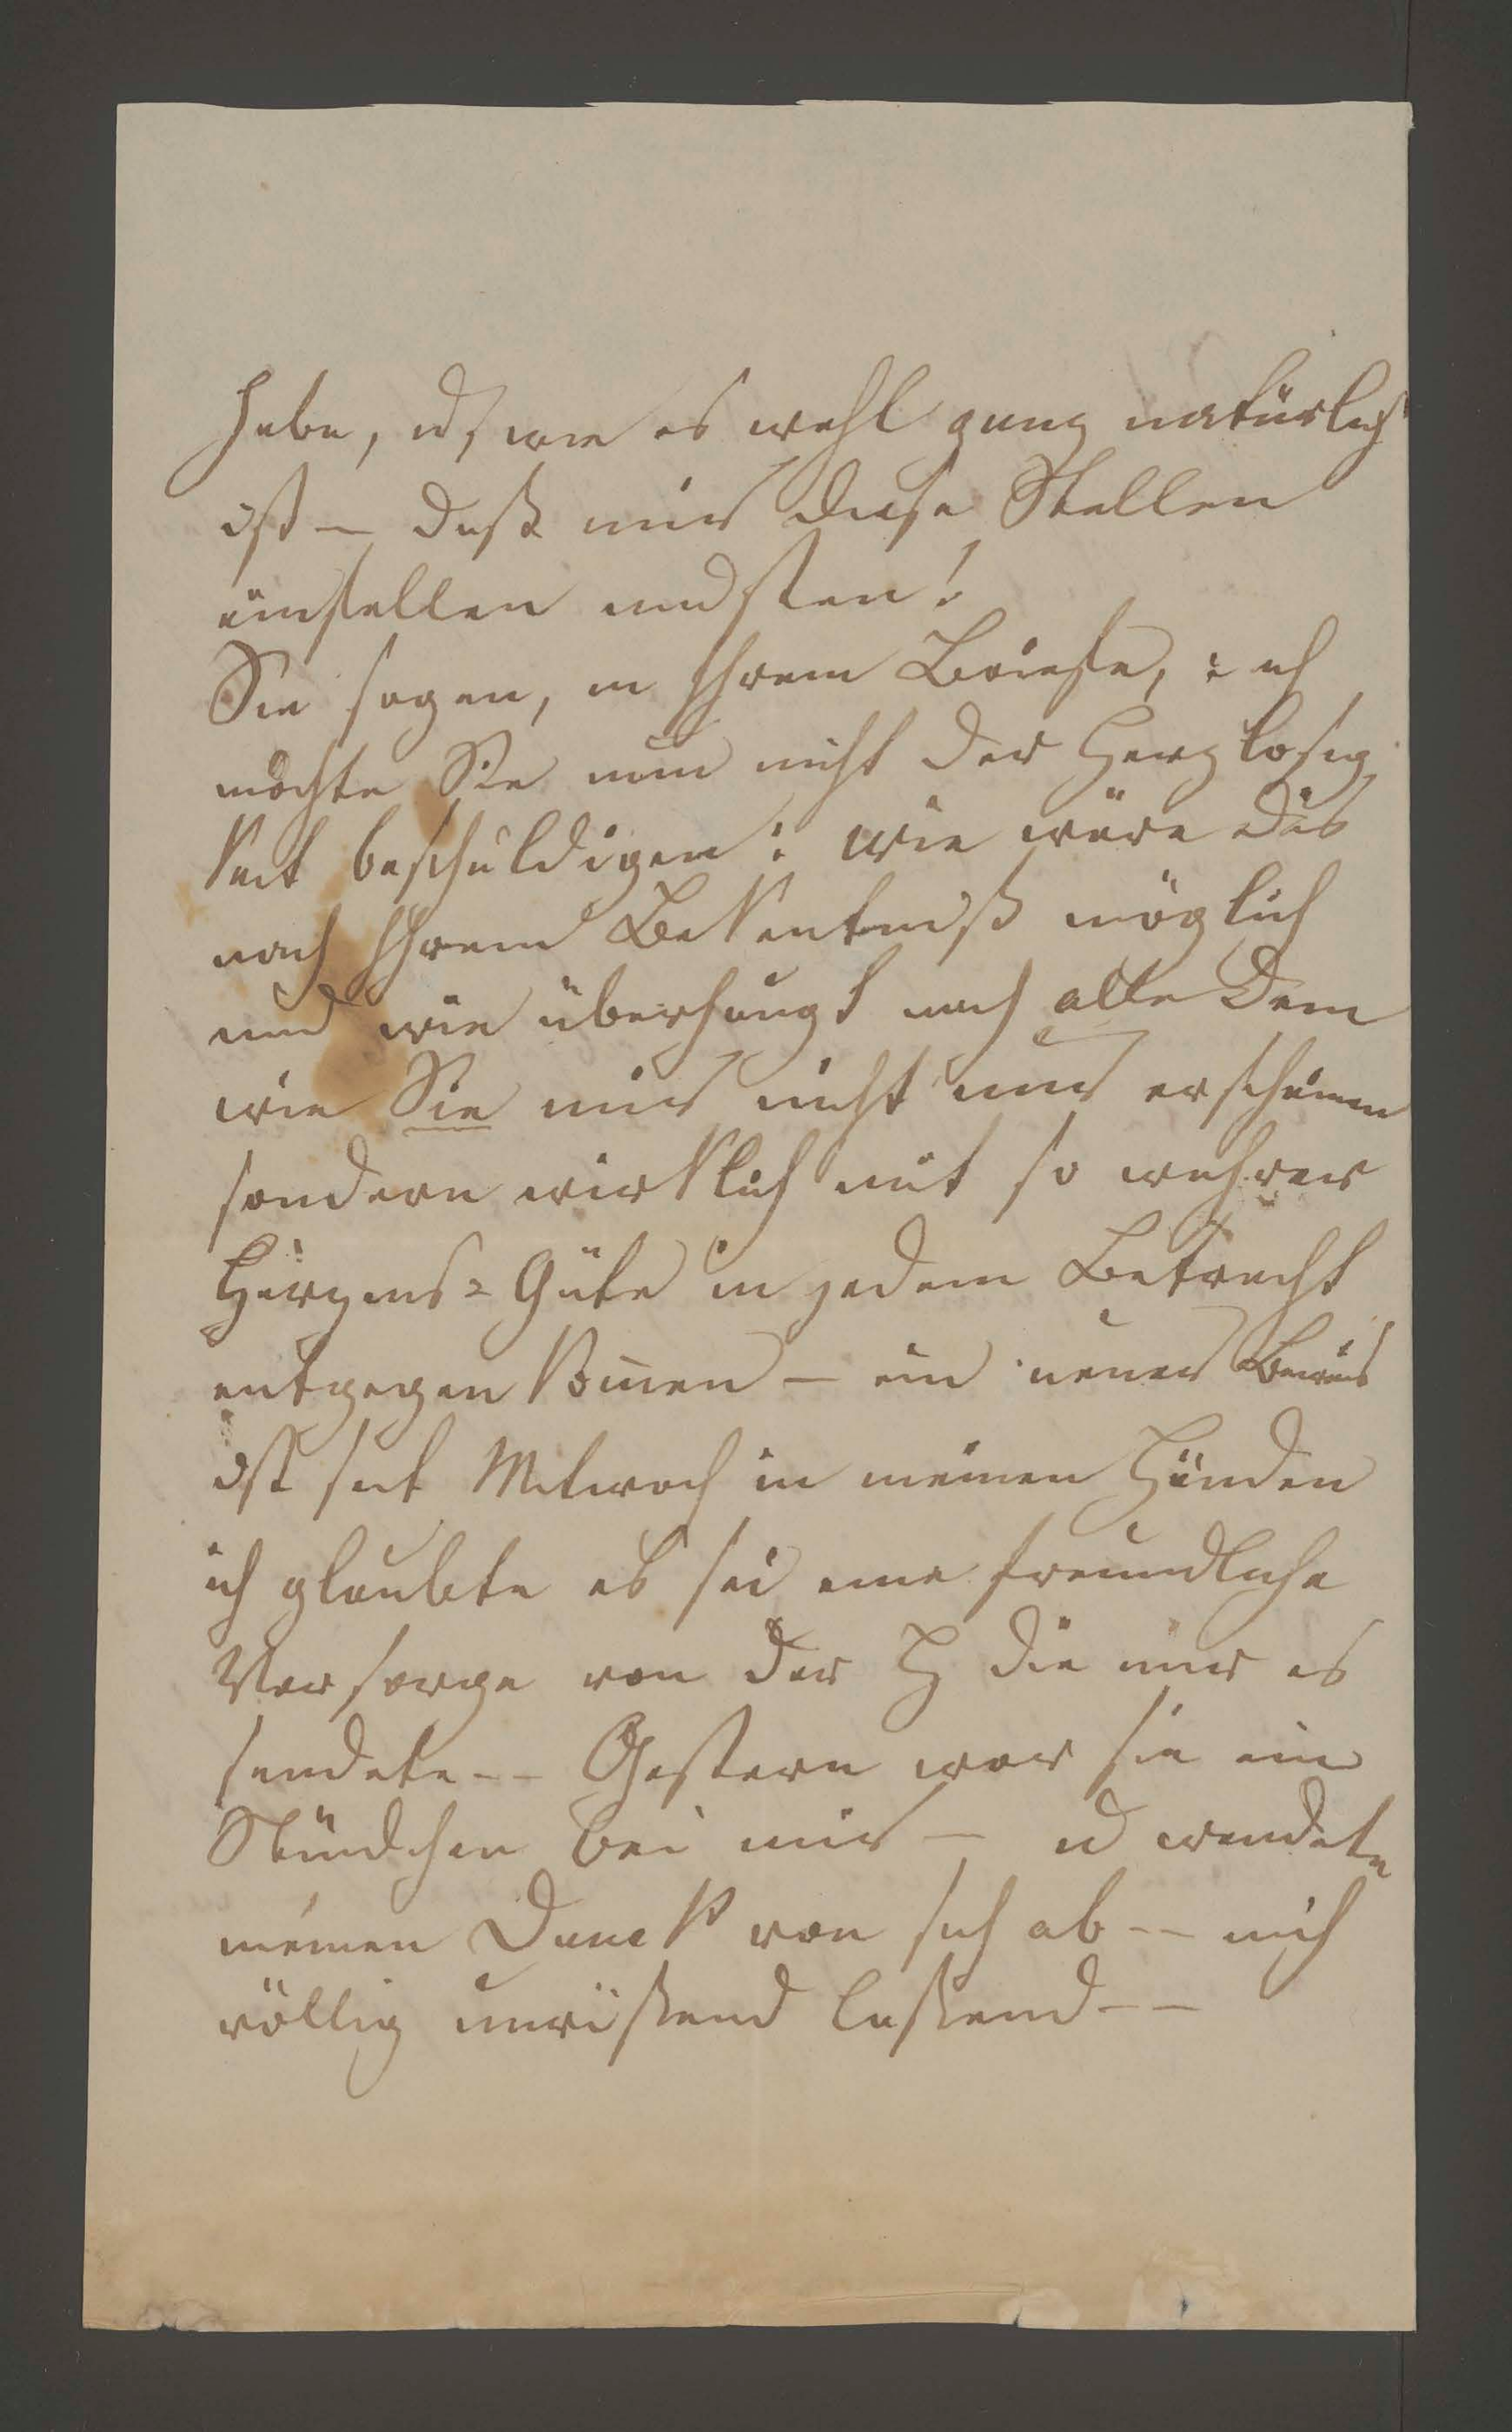 habe, ud, wie es wohl ganz natürlich
ist – daß mir diese Stellen
einfallen mußten!
Sie sagen, in Ihrem Briefe, : ich
möchte Sie nun nicht der Herzlosig
keit beschuldigen: wie wäre das
nach Ihrem Bekentniß möglich
und wie überhaupt nach alle Dem
wie Sie mir nicht nur erscheinen
sondern wirklich mit so wahrer
Herzens=Güte in jedem Betracht
entgegen komen – ein neuer Beweis
ist seit Mitwoch in meinen Händen
ich glaubte es sei eine freundliche
Vorsorge von der H die mir es
sendete –– Gestern war sie ein
Stündchen bei mir – ud wendete
meinen Danck von sich ab –– mich
völlig unwißend laßend ––